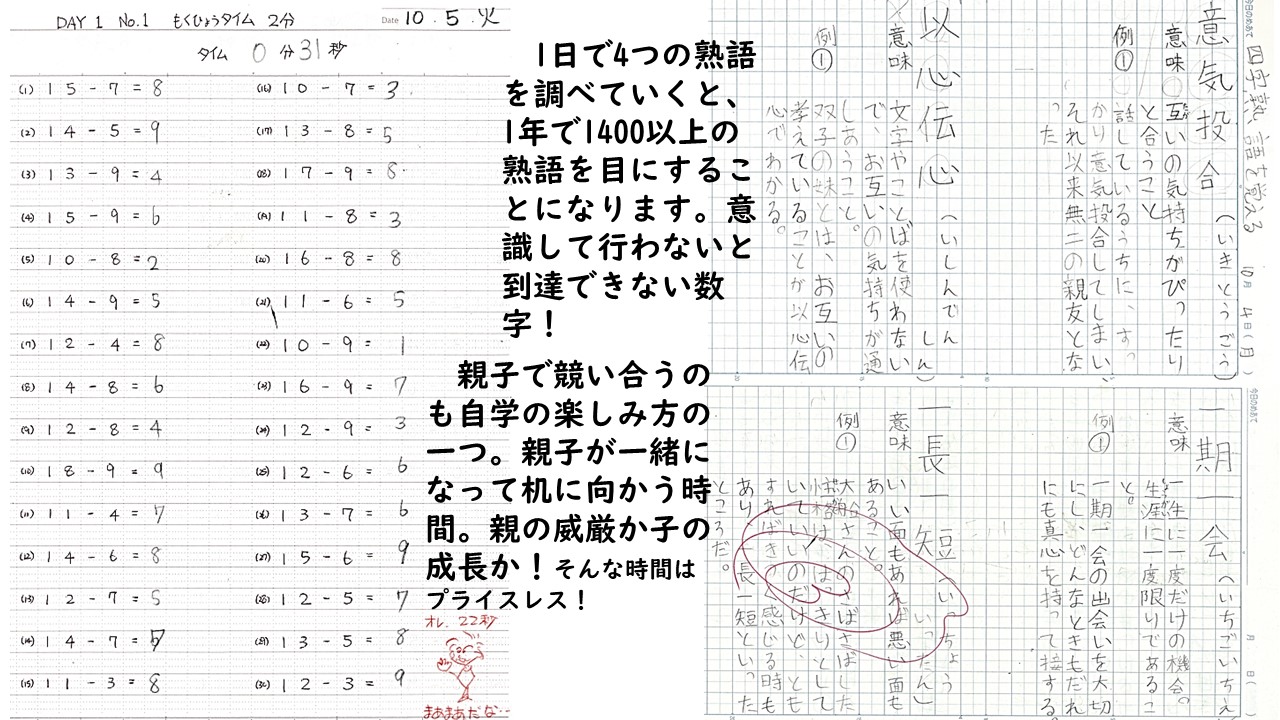 DAY 1 No.1 もくひょうタイム 2分
Date 10.5.火
タイム 0分31秒
(1) 15-7=8
(2) 14-5=9
(3) 13-9=4
(4) 15-9=6
(5) 10-8=2
(6) 14-9=5
(7) 12-4=8
(8) 14-8=6
(9) 12-8=4
(10) 18-9=9
(11) 11-4=7
(12) 14-6=8
(13) 12-7=5
(14) 14-7=7
(15) 11-3=8
(16) 10-7=3
(17) 13-8=5
(18) 17-9=8
(19) 11-8=3
(20) 16-8=8
(21) 11-6=5
(22) 10-9=1
(23) 16-9=7
(24) 12-9=3
(25) 12-6=6
(26) 13-7=6
(27) 15-6=9
(28) 12-5=7
(29) 13-5=8
(30) 12-3=9
オレ、22秒
まあまあだな…
1日で4つの熟語
を調べていくと、
1年で1400以上の
熟語を目にするこ
とになります。意
識して行わないと
到達できない数
字！
親子で競い合うの
も自学の楽しみ方の
一つ。親子が一緒に
なって机に向かう時
間。親の威厳か子の
成長か！そんな時間は
プライスレス！
今日のめあて
四字熟語を覚える 10月4日(月)
意気投合(いきとうごう)
意味 互いの気持ちがぴったり
と合うこと
例① 話しているうちに、すっ
かり意気投合してしまい、
それ以来無二の親友とな
った
以心伝心(いしんでんしん)
意味 文字やことばを使わない
で、お互いの気持ちが通
じあうこと。
例① 双子の妹とは、お互いの
考えていることが以心伝
心でわかる。
今日のめあて
月 日( )
一期一会(いちごいちえ)
意味 一生に一度だけの機会。
生涯に一度限りであるこ
と。
例① 一期一会の出会いを大切
にし、どんなときもだれ
にも真心を持って接する
一長一短(いっちょういったん)
意味 いい面もあれば悪い面も
あること。
例① 大谷さんのさばさばした
性格は、はっきりとして
いていいのだけど、とも
すればきつく感じる時も
あり一長一短といった
ところだ。